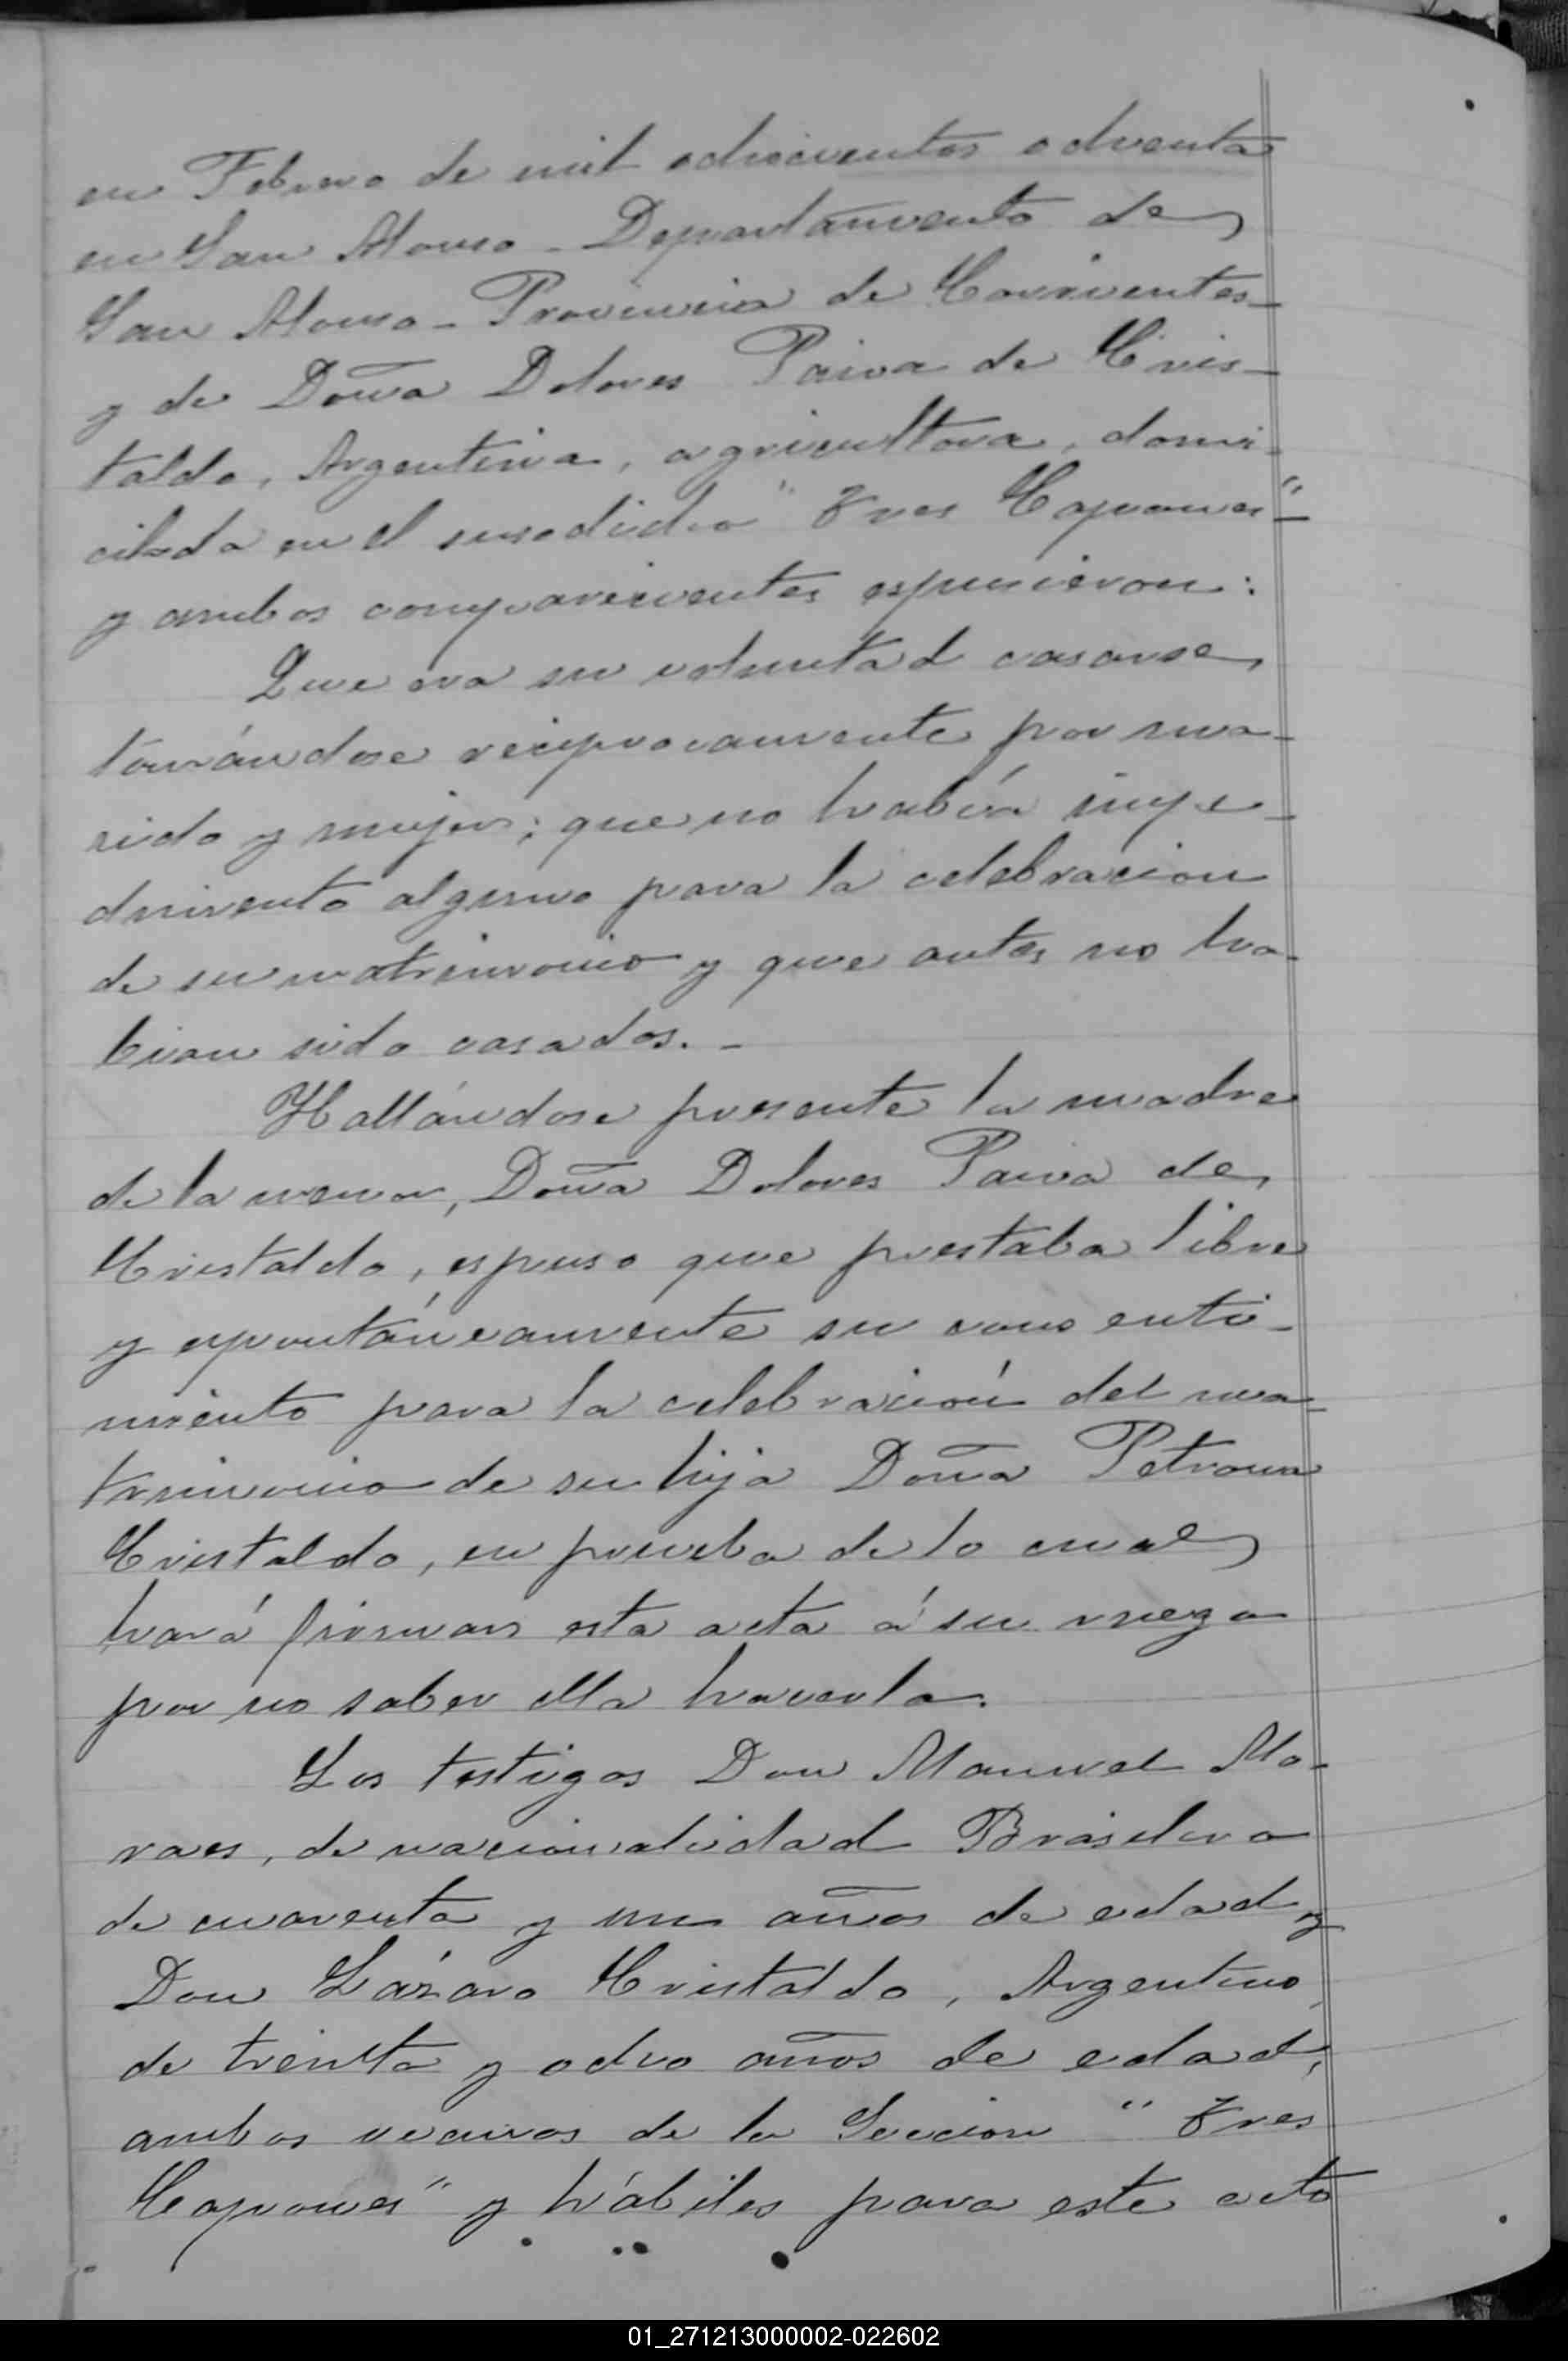 en Febrero de mil ochocientos ochenta
en San Alonso - Departamento de
San Alonso - Provincia de Corrientes -
y de Doña Dolores Paiva de Cris-
taldo, Argentina, agricultora, domi-
ciliada en el susodicho "Tres Capones"-
y ambos comparecientes espusieron:
Que era su voluntad casarse,
tomándose reciprocamente por ma-
rido y mujer; que no había impe-
dimento alguno para la celebracion
de su matrimonio y que antes no ha-
bian sido casados. -
Hallándose presente la madre
de la menor, Doña Dolores Paiva de
Cristaldo, espuso que prestaba libre
y espontáneamente su consenti-
miento para la celebración del ma-
trimonio de su hija Doña Petrona
Cristaldo, en prueba de lo cual
hará firmar esta acta á su ruego
por no saber ella hacerlo.
Los testigos Don Manuel Mo-
raes, de nacionalidad Brasilera
de cuarenta y un años de edad y
Don Lázaro Cristaldo, Argentino,
de treinta y ocho años de edad,
ambos vecinos de la Seccion "Tres
Capones" y hábiles para este acto
01_271213000002-022602